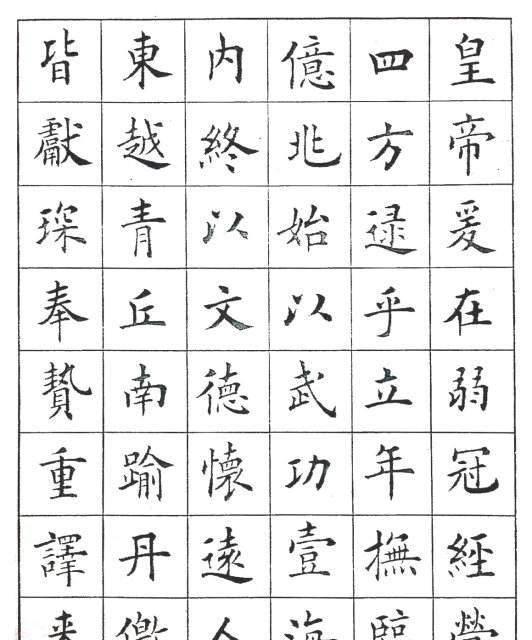 皇帝爰在弱冠經營
四方逮乎立年撫臨
億兆始以武功壹海
內終以文德懷遠人
東越青丘南踰丹儌
皆獻琛奉贄重譯来